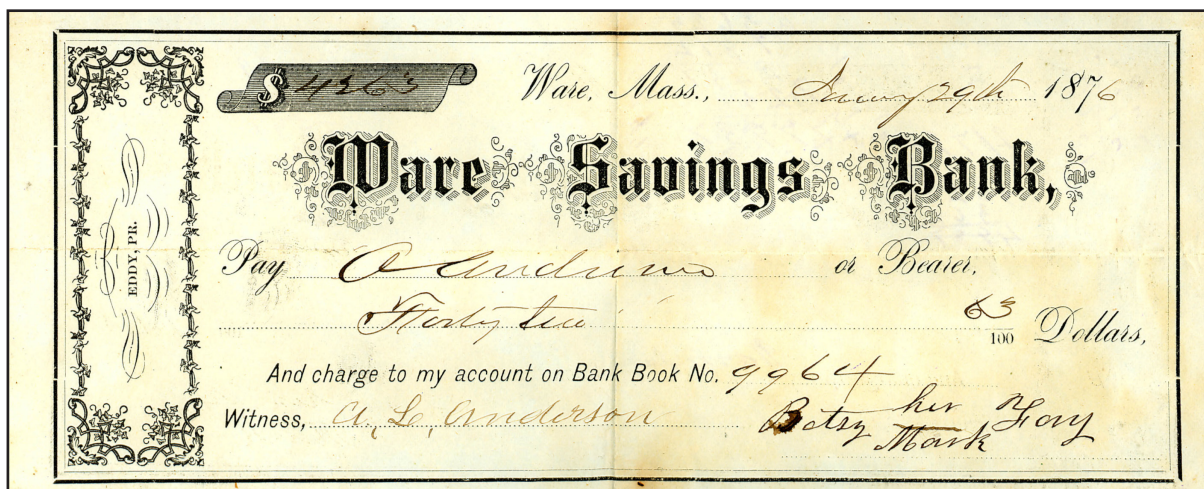 $ 4263 Ware, Mass., 29th 1876
Ware Savings Bank,
Pay O Andrews or Bearer,
Forty two 63/100 Dollars,
And charge to my account on Bank Book No. 9964
Witness, A. L. Anderson Betsy her Mark
EDDY, PR.